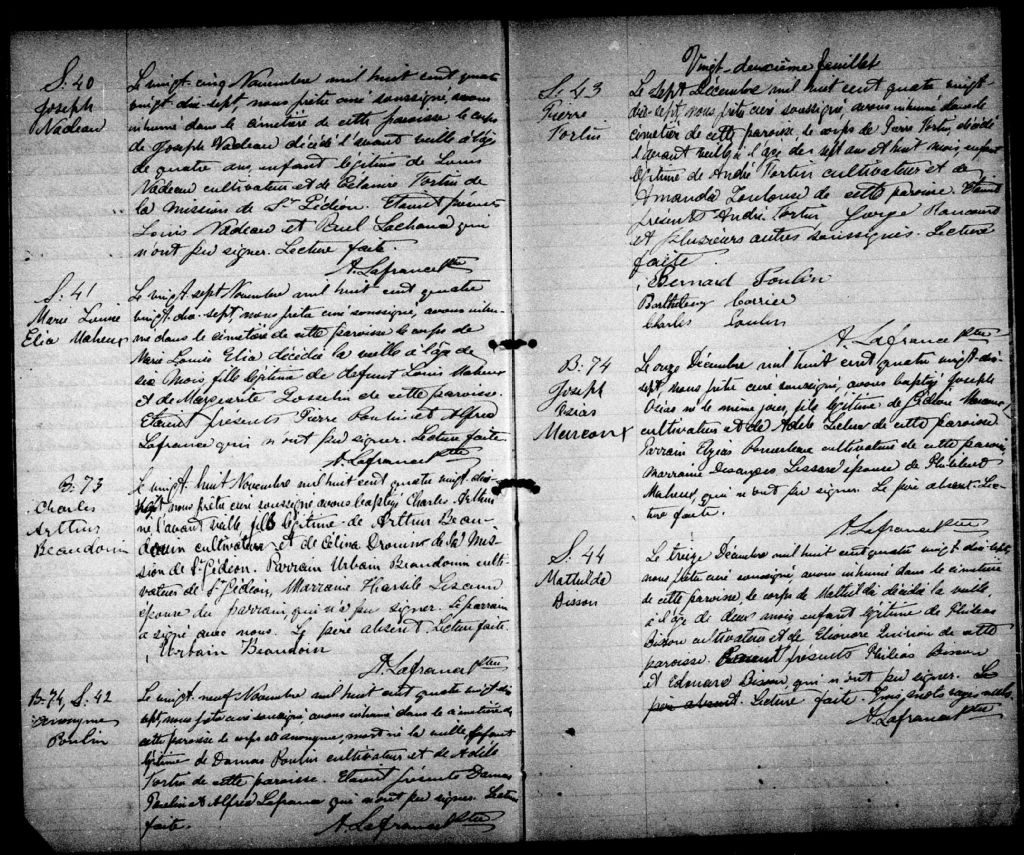 S. 40
Joseph
Nadeau
Le vingt cinq Novembre mil huit cent quatre
vingt-dix-sept nous prêtre curé soussigné, avons
inhumé dans le cimetière de cette paroisse le corps
de Joseph Nadeau décédé l'avant veille à l'âge
de quatre ans, enfant légitime de Louis
Nadeau cultivateur et de Tortin de
la mission de St Gédéon. Etaient présents
Louis Nadeau et Lachance qui
n'ont pu signer. Lecture faite.
A. Lafrance Ptre
S. 41
Marie Louise
Elia Maheux
Le vingt-sept Novembre mil huit cent quatre
vingt-dix-sept nous prêtre curé soussigné, avons inhu-
mé dans le cimetière de cette paroisse le corps de
Marie Louise Elia décédée la veille à l'âge de
six mois, fille légitime de defunt Louis Maheux
et de Marguerite Gosselin de cette paroisse.
Etaient présents Pierre Poulin et Alfred
Lafrance qui n'ont pu signer. Lecture faite
A. Lafrance Ptre
B. 73
Charles
Arthur
Beaudoin
Le vingt huit Novembre mil huit cent quatre vingt dix-
sept nous prêtre curé soussigné avons baptisé Charles Arthur
né l'avant veille, fils légitime de Arthur Beau-
douin cultivateur et de Célina Drouin de la mis-
sion de St Gédéon. Parrain Urbain Beaudouin culti-
vateur de St Gédeon, Marraine Lessard
épouse du parrain, qui n'a pu signer. Le parrain
a signé avec nous. Le père absent. Lecture faite.
Urbain Beaudoin
A. Lafrance Ptre
B. 74, S. 42
Anonyme
Poulin
Le vingt neuf Novembre mil huit cent quatre vingt dix
sept, nous prêtre curé soussigné, avons inhumé dans le cimetière de
cette paroisse le corps de anonyme, mort né la veille, enfant
légitime de Damas Poulin cultivateur et de Adèle
Fortin de cette paroisse. Etaient présents Damas
Poulin et Alfred Lafrance qui n'ont pu signer. Lecture
faite.
A. Lafrance Ptre
Vingt-deuxième feuillet
S. 43
Pierre
Fortin
Le sept Décembre mil huit cent quatre vingt
dix-sept, nous prêtre curé soussigné, avons inhumé dans le
cimetière de cette paroisse le corps de Pierre Fortin, décédé
l'avant veille à l'âge de sept ans et huit mois, enfant
légitime de André Fortin cultivateur et de
Amanda Toulouse de cette paroisse. Etaient
présents André Fortin George Rancourt
et plusieurs autres soussignés. Lecture
faite
Bernard Poulin
Barthelemy Carrier
Charles Poulin
A. Lafrance Ptre
B. 74
Joseph
Osias
Marcoux
Le onze Décembre mil huit cent quatre vingt-dix-
sept nous prêtre curé soussigné, avons baptisé Joseph
Osias né le même jour, fils légitime de Gédéon Marcoux
cultivateur et de Adèle Leclerc de cette paroisse
Parrain Elzéas Pomerleau cultivateur de cette paroisse
marraine Desanges Lessard épouse de Philibert
Maheux, qui n'ont pu signer. Le père absent. Lec-
ture faite.
A. Lafrance Ptre
S. 44
Mathilde
Bisson
Le treize Décembre mil huit cent quatre vingt-dix-sept,
nous prêtre curé soussigné, avons inhumé dans le cimetière
de cette paroisse le corps de Mathilde décédée la veille,
à l'âge de deux mois enfant légitime de Philéas
Bisson cultivateur et de Eléonore Quirion de cette
paroisse. présents Philéas Bisson
et Edouard Bisson, qui n'ont pu signer. Le
père absent. Lecture faite. Trois mots rayés nuls.
A. Lafrance Ptre